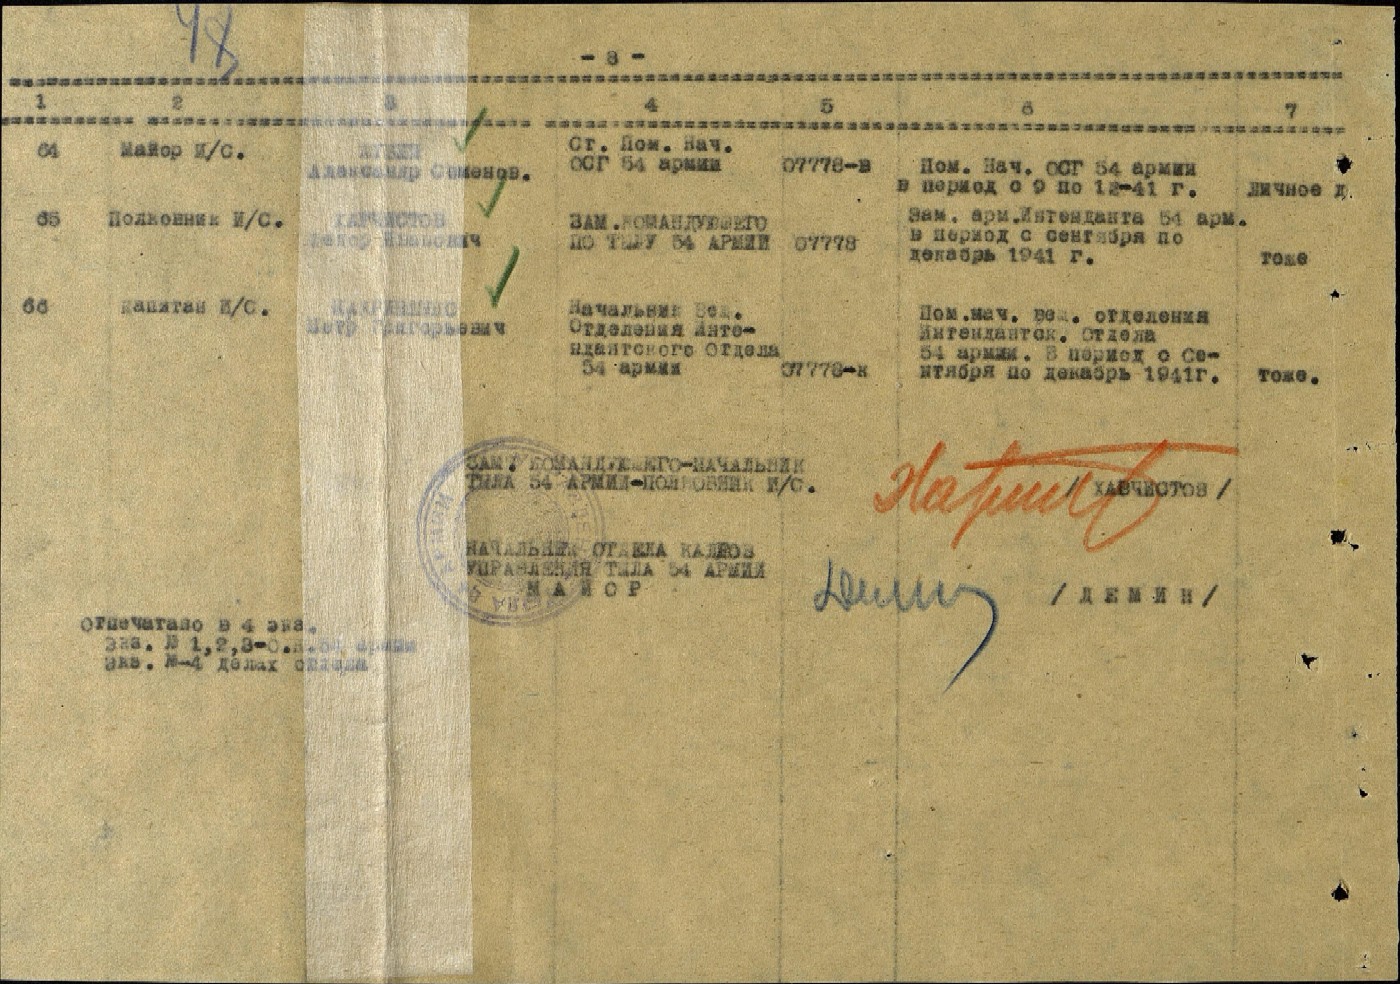 48
- 8 -
1 2 3 4 5 6 7
64 Майор И/С. Александр Семенов. Ст. Пом. Нач. ОСГ 54 армии 07778-в Пом. Нач. ОСГ 54 армии в период с 9 по 12-41 г. личное д.
65 Полковник И/С. ХАВЧИСТОВ Иванович ЗАМ.КОМАНДУЮЩЕГО ПО ТЫЛУ 54 АРМИИ 07778 Зам. арм.Интенданта 54 арм. в период с сентября по декабрь 1941 г. тоже
66 Капитан И/С. Петр Григорьевич Начальник Вещ. Отделения Инте- ндантского Отдела 54 армии 07778-к Пом.нач. вещ. отделения Интендантск. Отдела 54 армии. В период с Се- нтября по декабрь 1941г. тоже.
ЗАМ. КОМАНДУЮЩЕГО-НАЧАЛЬНИК
ТЫЛА 54 АРМИИ-ПОЛКОВНИК И/С. / ХАВЧИСТОВ /
НАЧАЛЬНИК ОТДЕЛА КАДРОВ
УПРАВЛЕНИЯ ТЫЛА 54 АРМИИ
МАЙОР / ДЕМИН /
Отпечатано в 4 экз.
экз. № 1,2,3-О.К.54 армии
экз. №-4 делах отдела